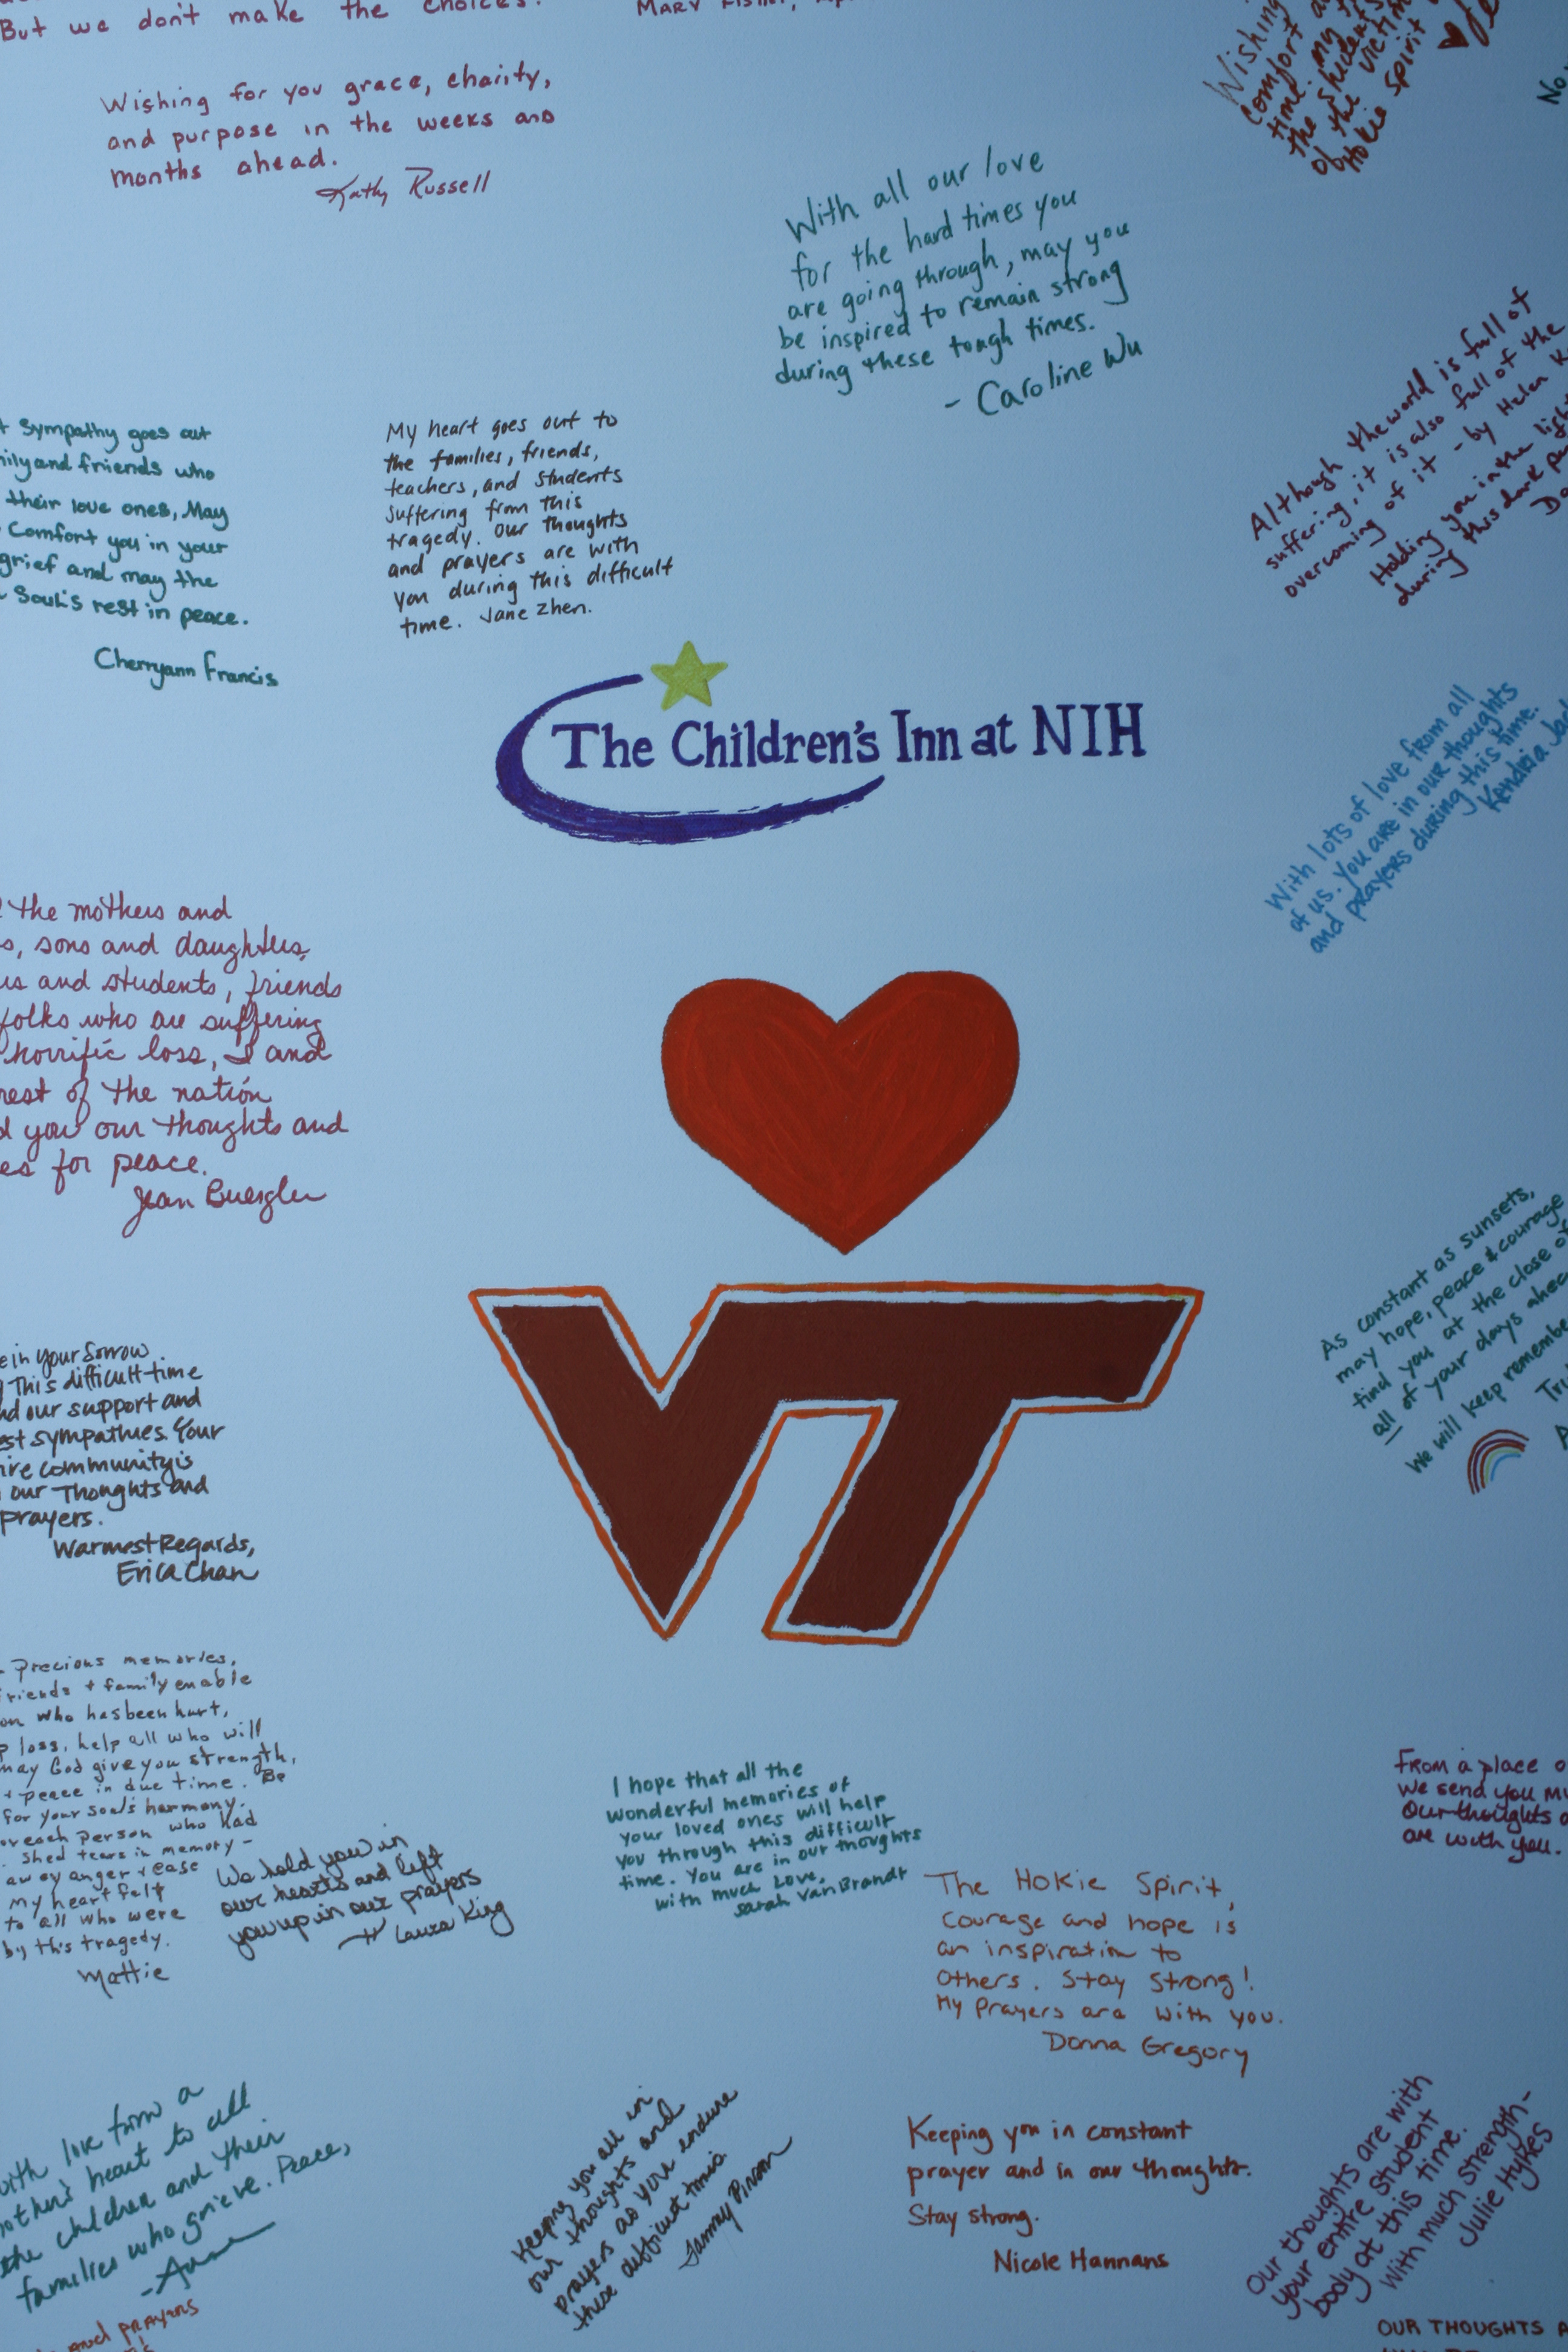 But we don't make the choices.
MARY
Wishing for you grace, charity,
and purpose in the weeks and
months ahead.
Kathy Russell
Wishing
comfort
time. my
the students
of the victim
Hokie spirit
No
With all our love
for the hard times you
are going through, may you
be inspired to remain strong
during these tough times.
- Caroline Wu
Sympathy goes out
and friends who
their love ones, May
Comfort you in your
grief and may the
Soul's rest in peace.
Cherryann Francis
My heart goes out to
the families, friends,
teachers, and students
suffering from this
tragedy. Our thoughts
and prayers are with
you during this difficult
time. Jane Zhen.
Although the world is full of
suffering, it is also full of the
overcoming of it - by Helen
Holding you in the
during this dark
The Children's Inn at NIH
With lots of love from all
of us. You are in our thoughts
and prayers during this time.
Kendra
the mothers and
s, sons and daughters,
and students, friends
folks who are suffering
horrific loss, I and
rest of the nation
you our thoughts and
for peace.
Jean
VT
As constant as sunsets,
may hope, peace & courage
find you at the close of
all of your days
We will keep
in your sorrow.
This difficult time
our support and
sympathies. Your
community is
our Thoughts and
prayers.
Warmest Regards,
Erica Chan
Precious memories,
friends + family enable
who has been hurt,
loss, help all who will
may God give you strength,
+ peace in due time. Be
for your soul's harmony.
each person who had
shed tears in memory -
away anger + ease
my heart felt
to all who were
by this tragedy.
Mattie
We hold you in
our hearts and left
you up in our prayers
Laura King
I hope that all the
wonderful memories of
your loved ones will help
you through this difficult
time. You are in our thoughts
with much love,
Sarah VanBrandt
The Hokie Spirit,
Courage and hope is
an inspiration to
Others. Stay Strong!
My Prayers are with you.
Donna Gregory
From a place
We send you
Our thoughts
are with you.
with love from a
mother's heart to all
the children and their
families who grieve. Peace,
- Anne
and prayers
Keeping you all in
our thoughts and
prayers as you endure
these difficult times
Tammy
Keeping you in constant
prayer and in our thoughts.
Stay strong.
Nicole Hannans
Our thoughts are with
your entire student
body at this time.
With much strength-
Julie Hykes
OUR THOUGHTS